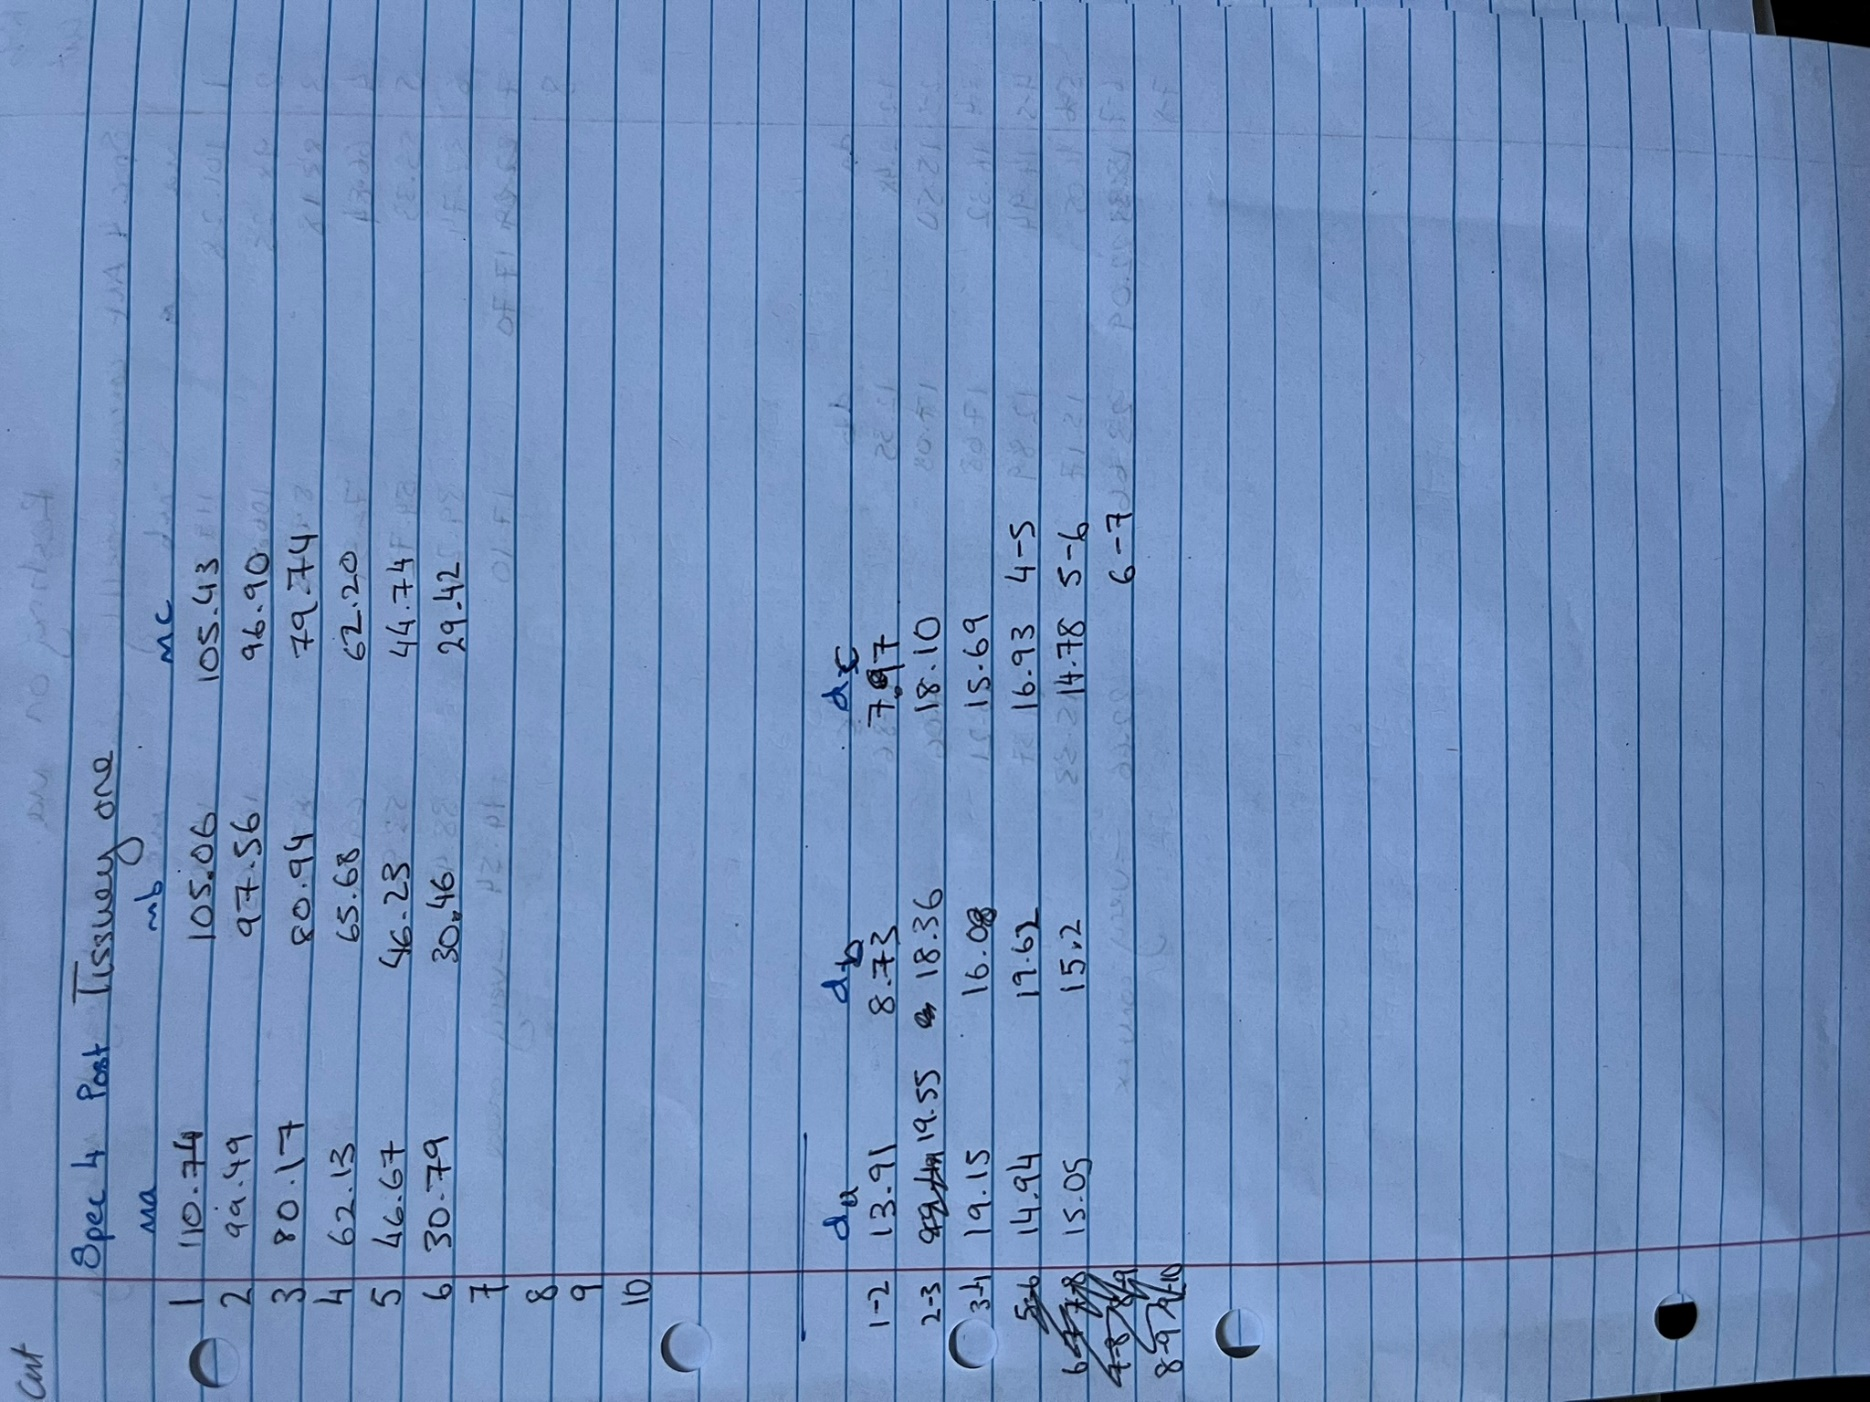 cut
Spec 4 Post Tissuey one
ma mb mc
1 110.74 105.06 105.43
2 99.49 97.56 96.90
3 80.17 80.94 79.74
4 62.13 65.68 62.20
5 46.67 46.23 44.74
6 30.79 30.46 29.42
7
8
9
10
da db dc
1-2 13.91 8.73 7.97
2-3 19.55 18.36 18.10
3-4 19.15 16.08 15.69
5-6 14.94 19.62 16.93 4-5
6-7 7-8 15.05 15.2 14.78 5-6
7-8 8-9 6-7
8-9 9-10